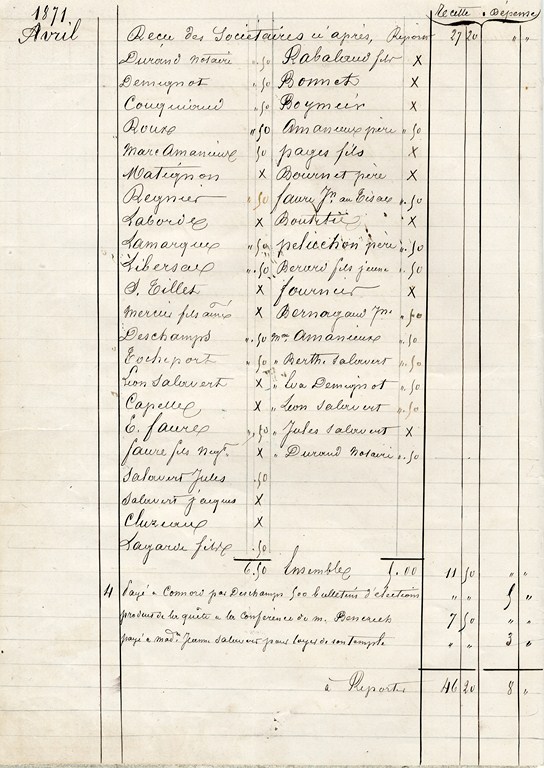 1871 Recette . Dépense
Avril Recu des Sociétaires ci après, Report 27 20 " "
Durand Notaire ".50 Rabalaud fils X
Demignot ".50 Bonnet X
Couquiaud ".50 Boymeir X
Roux ".50 Amanieux père ".50
Marc Amanieux 50 pages fils X
Matignon X Bournet père X
Regnier ".50 faure Jn au ".50
Laborde X X
Lamarque ".50 père ".50
Libersac ".50 Berard fils jeune ".50
S. Tillet X fournier X
Mercier fils ainé X Bernagaud Jne ".50
Deschamps ".50 Mme Amanieux ".50
Rocheport ".50 " Berthe Salauvert ".50
Léon Salauvert X " Eva Demignot ".50
Capelle X " Léon Salauvert ".50
E. faure ".50 " Jules Salauvert X
faure fils Negt X " Durand Notaire ".50
Salauvert Jules .50
Salauvert jacques X
Cluzeau X
Lagarde fils .50
6.50 Ensemble 11 50 " "
4 Payé a par Deschamps 500 bulletins d'élections " " 5 "
produit de la quête a la conférence de m. 7 50 " "
payé a made Jeanne Salauvert pour loyer de son temple " " 3 "
à Reporter 46 20 8 "